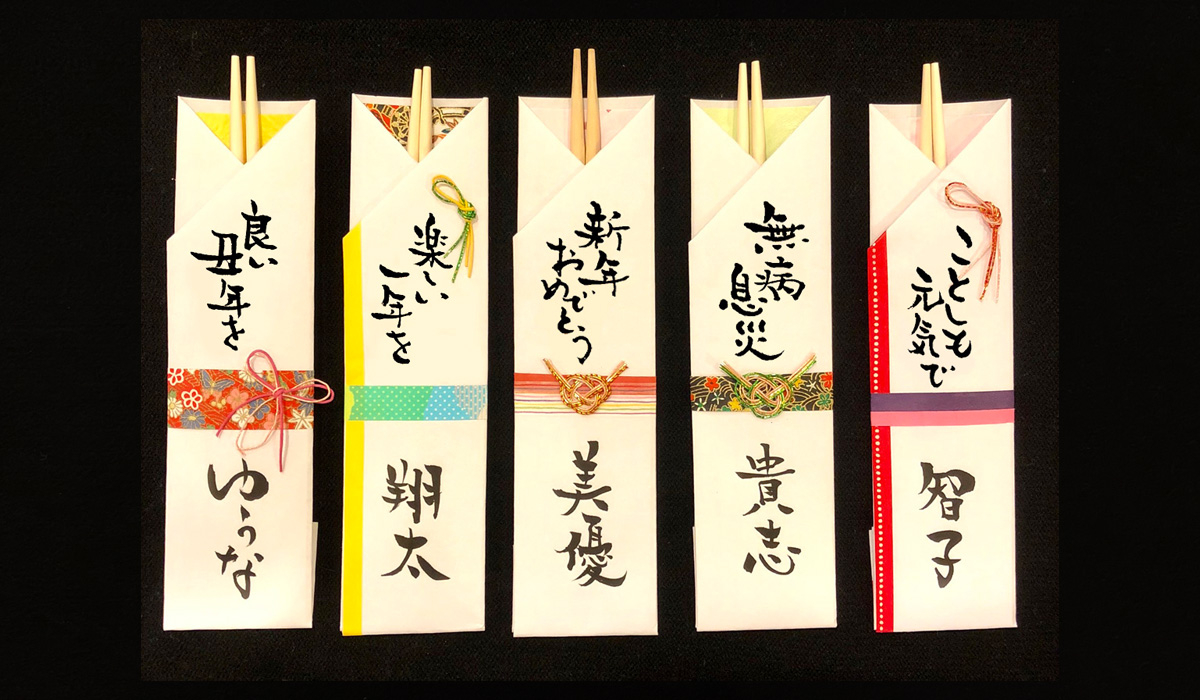 良い
丑年を
ゆうな
楽しい
一年を
翔太
新年
おめでとう
美優
無病
息災
貴志
ことしも
元気で
智子